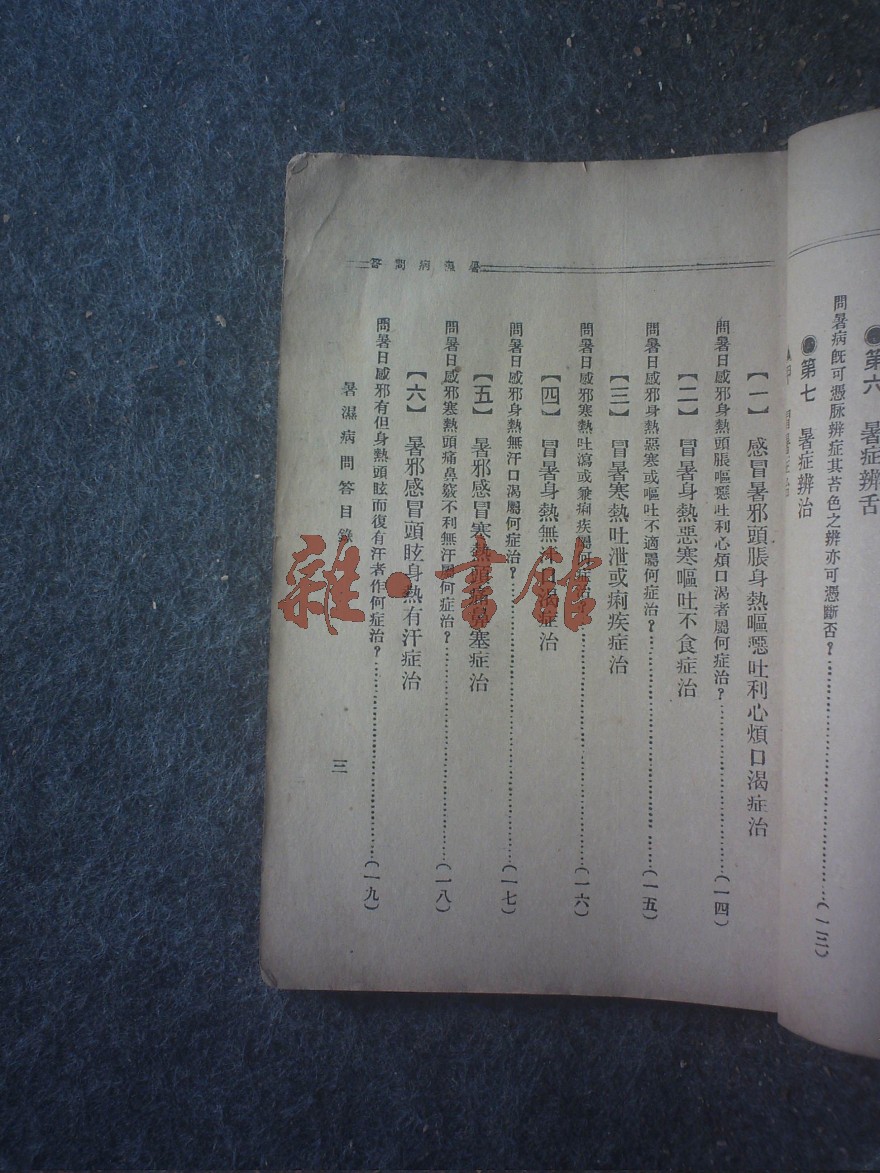 第六 暑症辨舌
問暑病旣可憑脉辨症其苔色之辨亦可憑斷否？……(一三)
第七 暑症辨治
【一】 感冒暑邪頭脹身熱嘔噁吐利心煩口渴症治
問暑日感邪身熱頭脹嘔噁吐利心煩口渴者屬何症治？……(一四)
【二】 冒暑身熱惡寒嘔吐不食症治
問暑日感邪身熱惡寒或嘔吐不適屬何症治？……(一五)
【三】 冒暑寒熱吐泄或痢疾症治
問暑日感邪寒熱吐瀉或兼痢疾屬何症治？……(一六)
【四】 冒暑身熱無汗口渴症治
問暑日感邪身熱無汗口渴屬何症治？……(一七)
【五】 暑邪感冒寒熱頭痛鼻塞症治
問暑日感邪寒熱頭痛鼻竅不利無汗屬何症治？……(一八)
【六】 暑邪感冒頭眩身熱有汗症治
問暑日感邪有但身熱頭眩而復有汗者作何症治？……(一九)
暑濕病問答目錄
三
暑濕病問答
雜·書館